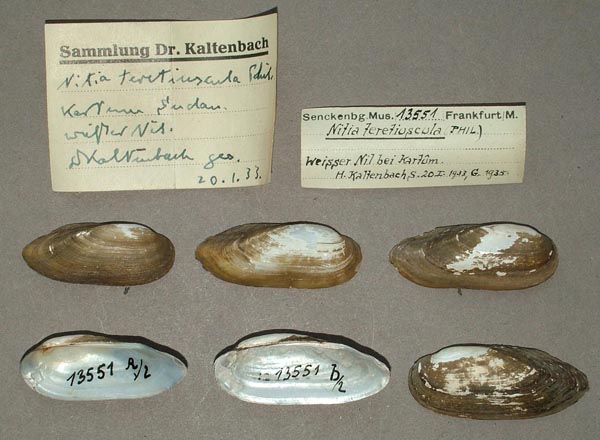 Sammlung Dr. Kaltenbach
Nitia teretiuscula Phil.
Kartum Sudan.
weißer Nil.
Kaltenbach ges.
20.1.33.
Senckenbg.Mus. 13551 Frankfurt/M.
Nitia teretiuscula PHIL.)
Weisser Nil bei Kartûm.
H. Kaltenbach, S. 20.I.1933, G. 1935.
13551 A/2
13551 b/2